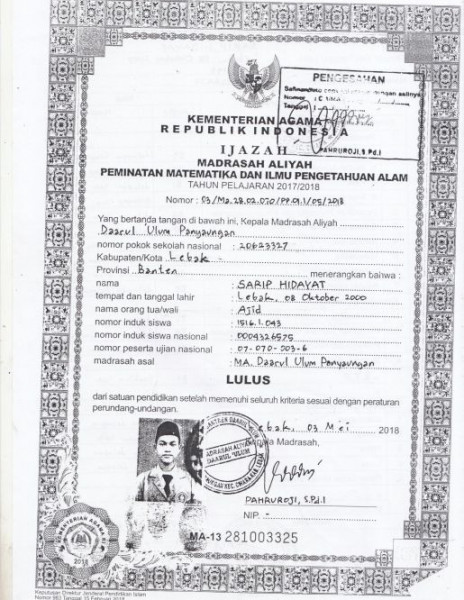 PENGESAHAN
Nomor
Tanggal
PAHRUROJI, S.Pd.I
KEMENTERIAN AGAMA
REPUBLIK INDONESIA
IJAZAH
MADRASAH ALIYAH
PEMINATAN MATEMATIKA DAN ILMU PENGETAHUAN ALAM
TAHUN PELAJARAN 2017/2018
Nomor : 03/Ma.28.02.070/PP.01.1/05/2018
Yang bertanda tangan di bawah ini, Kepala Madrasah Aliyah
Daarul Ulum Panyaungan
nomor pokok sekolah nasional : 20623327
Kabupaten/Kota Lebak
Provinsi Banten menerangkan bahwa :
nama : SARIP HIDAYAT
tempat dan tanggal lahir : Lebak, 08 Oktober 2000
nama orang tua/wali : Ajid
nomor induk siswa : 1516.1.043
nomor induk siswa nasional : 0004326575
nomor peserta ujian nasional : 07-070-003-6
madrasah asal : MA. Daarul Ulum Panyaungan
LULUS
dari satuan pendidikan setelah memenuhi seluruh kriteria sesuai dengan peraturan
perundang-undangan.
Lebak, 03 Mei 2018
Kepala Madrasah,
MADRASAH ALIYAH
DAARUL ULUM
PAHRUROJI, S.Pd.I
NIP. -
MA-13 281003325
KEMENTERIAN AGAMA
2018
Keputusan Direktur Jenderal Pendidikan Islam
Nomor 983 Tanggal 15 Februari 2018